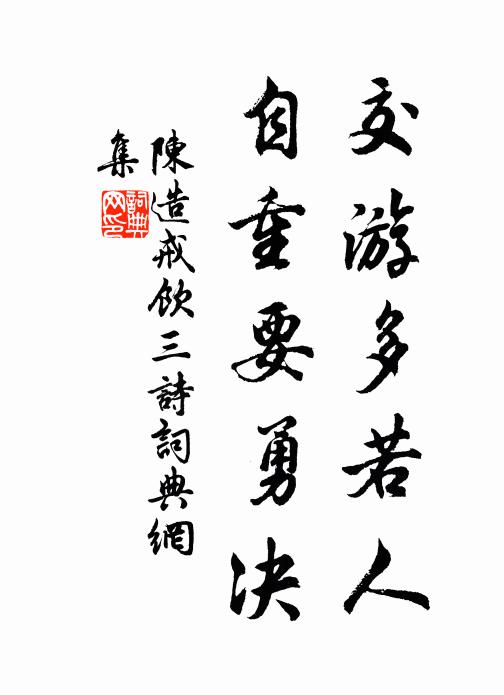 交游多若人
自重要勇决
陳造戒飲三詩詞典網
集
詞典
网印